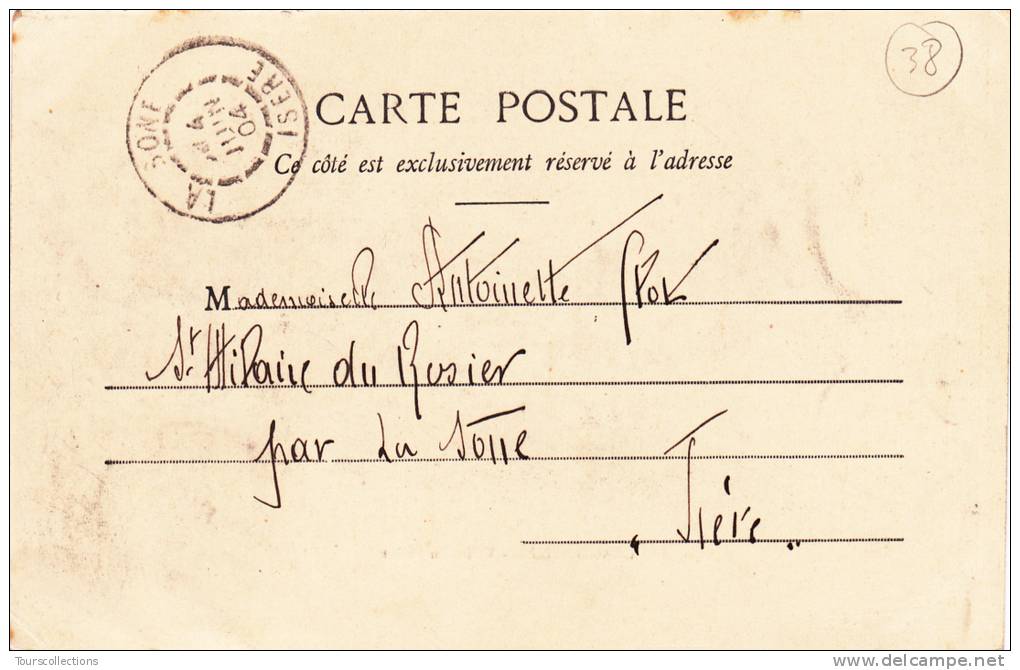 38
LA SONE ISERE
4
JUIN
04
CARTE POSTALE
Ce côté est exclusivement réservé à l'adresse
Mademoiselle Antoinette
St Hilaire du Rosier
par La Sône
Isère
Tourscollections
delcampe.net